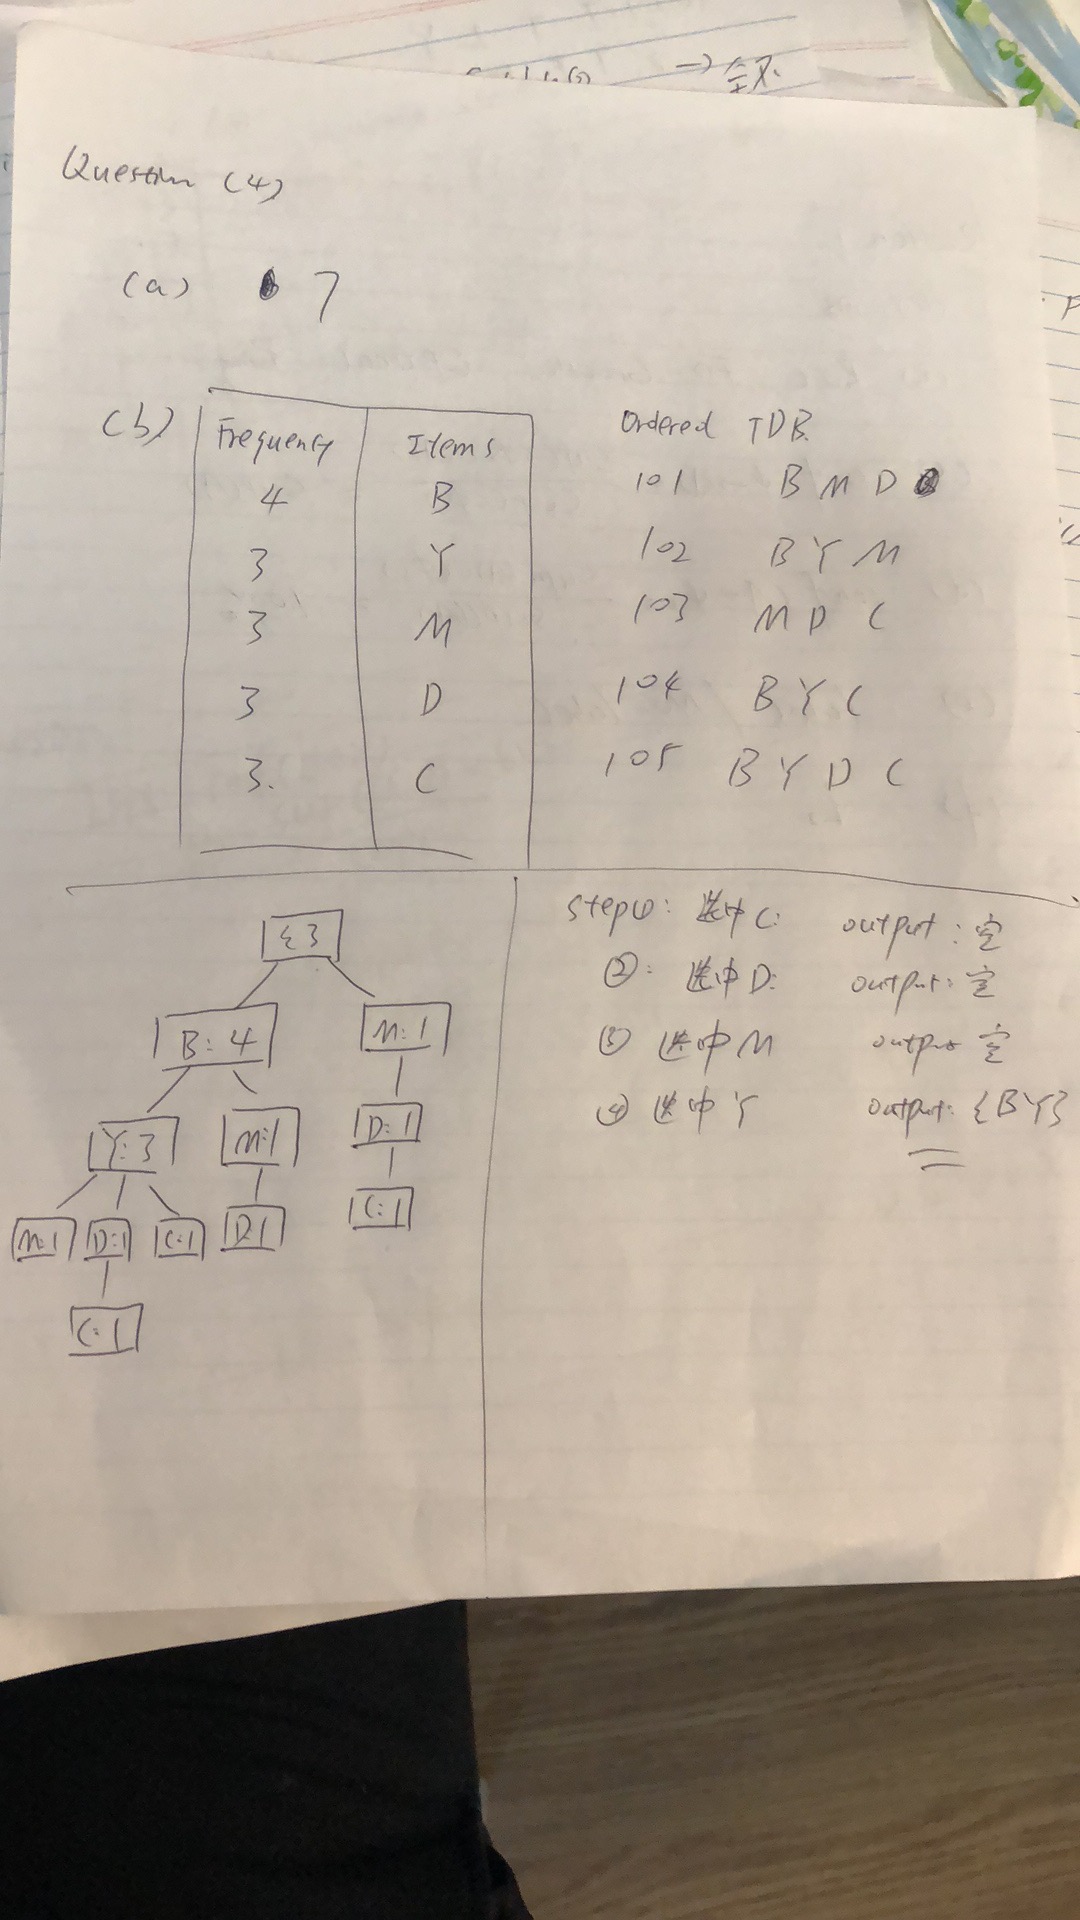 →
Question (4)
(a) 7
(b) Frequency Items
4 B
3 Y
3 M
3 D
3. C
Ordered TDB.
101 B M D
102 B Y M
103 M D C
104 B Y C
105 B Y D C
{}
B:4 M:1
Y:3 M:1 D:1
M:1 D:1 C:1 D:1 C:1
C:1
step①: 选中C: output: 空
②: 选中D: output: 空
③ 选中M output 空
④ 选中Y output: {BY}